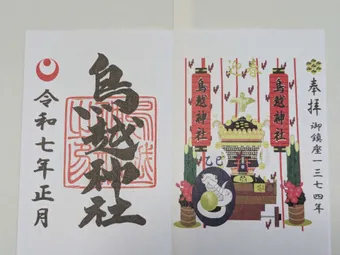 奉拝
御鎮座一三七四年
鳥越神社
迎春
鳥越神社
乙巳
鳥越神社
令和七年正月